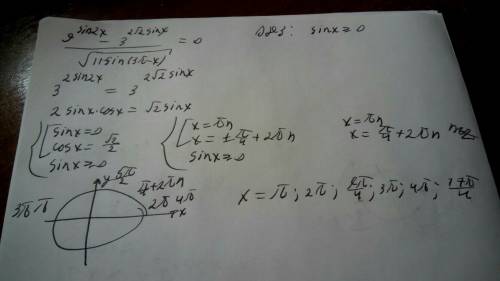 9^{sin2x} - 3^{2√2 sinx} / √(11 sin(3π-x)) = 0    ОДЗ: sinx ≥ 0
3^{2sin2x} = 3^{2√2 sinx}
2 sinx·cosx = √2 sinx
{ [ sinx=0    { [ x=πn    x=πn
cosx = √2/2    x = ±π/4 + 2πn    x = π/4 + 2πn n∈Z
sinx ≥ 0    sinx ≥ 0
y 5π/2
π/4 + 2πn
3π π    2π 4π x
x = π; 2π; 9π/4; 3π; 4π; 17π/4